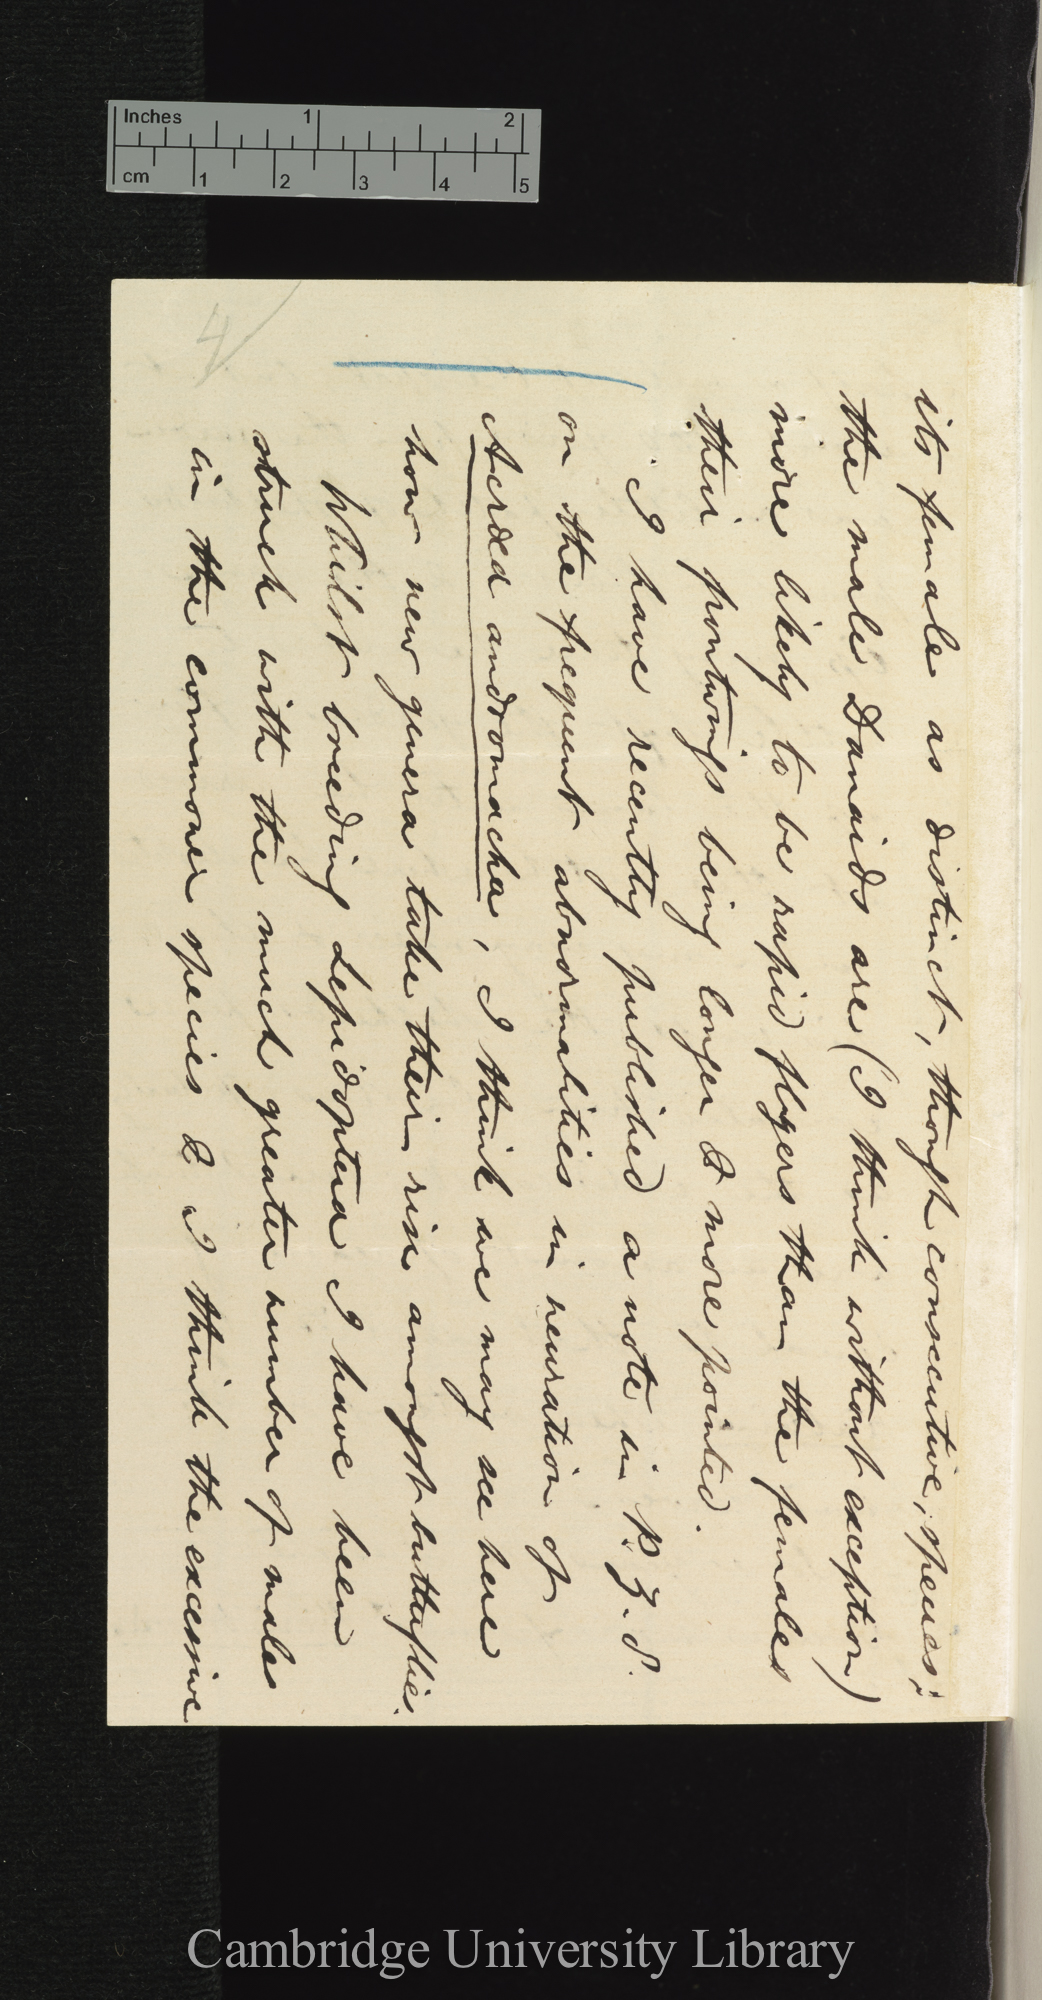 Inches 1 2
cm 1 2 3 4 5
4
its female as distinct, though consecutive, species;
the male Danaids are (I think without exception)
more likely to be rapid flyers than the females
their frontwings being longer & more pointed.
I have recently published a note in P. Z. S.
on the frequent abnormalities in neuration of
Acræa andromacha, I think we may see here
how new genera take their rise amongst butterflies.
Whilst breeding Lepidoptera I have been
struck with the much greater number of males
in the commoner species & I think the excessive
Cambridge University Library